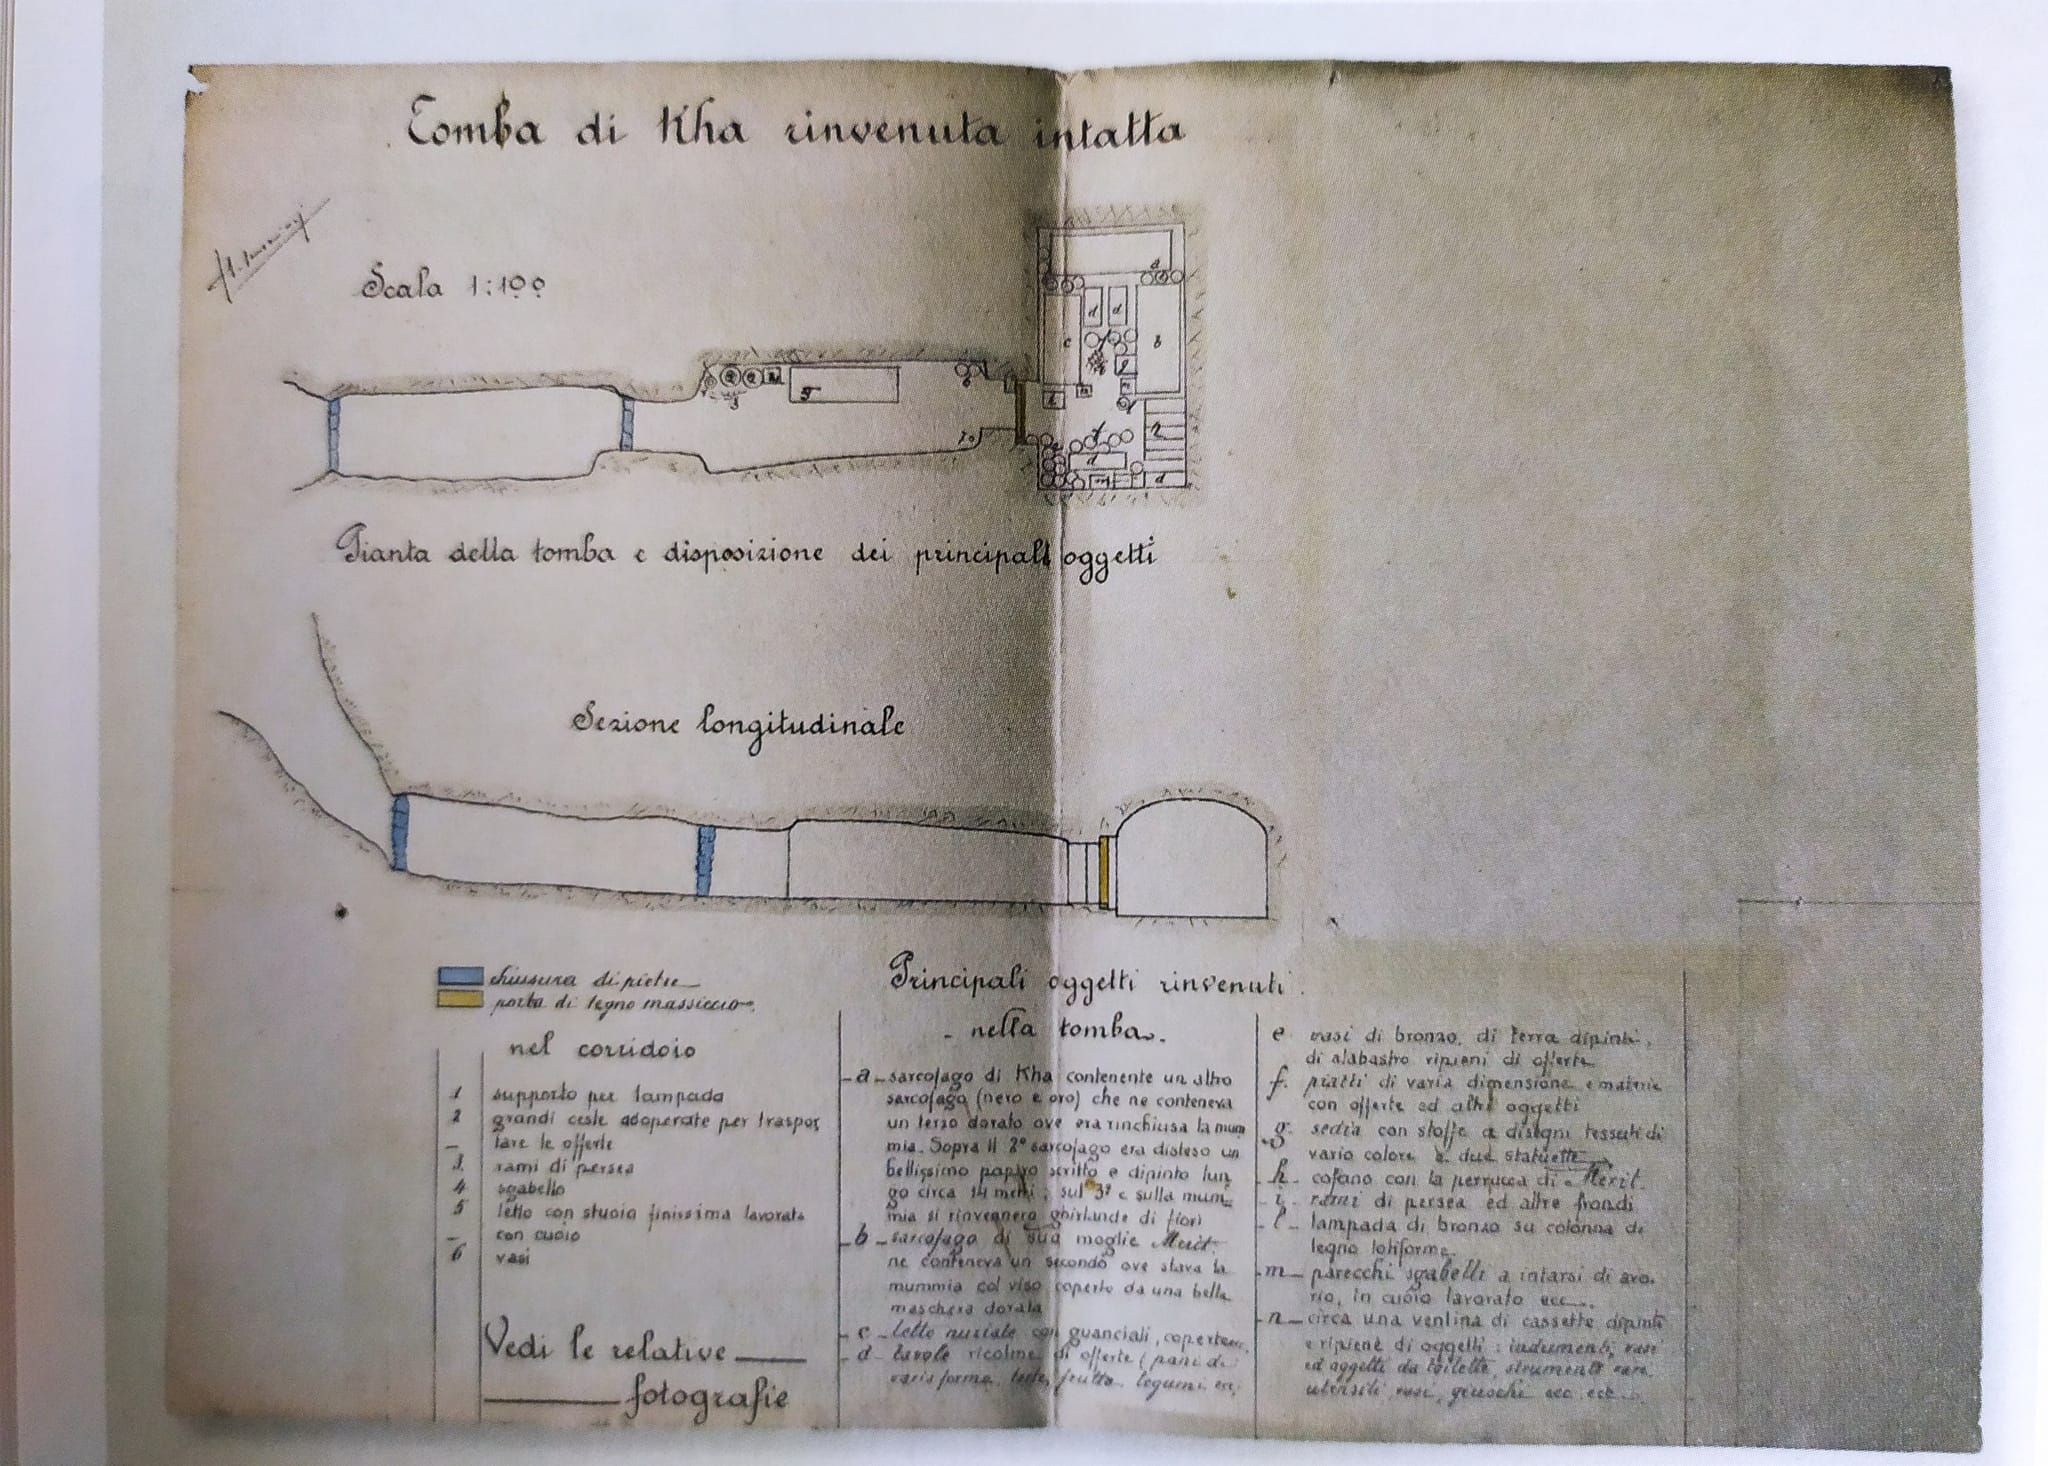 Tomba di Kha rinvenuta intatta
Scala 1:100
Pianta della tomba e disposizione dei principali oggetti
Sezione longitudinale
chiusura di pietre
porta di legno massiccio.
nel corridoio
1 supporto per lampada
2 grandi ceste adoperate per traspor
— tare le offerte
3. rami di persea
4 sgabello
5 letto con stuoia finissima lavorata
— con cuoio
6 vasi
Vedi le relative
fotografie
Principali oggetti rinvenuti
- nella tomba -
a - sarcofago di Kha contenente un altro
sarcofago (nero e oro) che ne conteneva
un terzo dorato ove era rinchiusa la mum
mia. Sopra il 2° sarcofago era disteso un
bellissimo papiro scritto e dipinto lun
go circa 14 metri; sul 3° e sulla mum
mia si rinvennero ghirlande di fiori
b - sarcofago di sua moglie Merit.
ne conteneva un secondo ove stava la
mummia col viso coperto da una bella
maschera dorata
c - letto nuziale con guanciali, coperte
d - tavole ricolme di offerte (pani di
varia forma, frutta, legumi, ecc,
e vasi di bronzo, di terra dipinti,
di alabastro ripieni di offerte
f. piatti di varia dimensione e materia
con offerte ed altri oggetti
g. sedia con stoffe a disegni tessuti di
vario colore e due statuette
h. cofano con la perrucca di Merit.
i. rami di persea ed altre frondi
l - lampada di bronzo su colonna di
legno lotiforme.
m - parecchi sgabelli a intarsi di avo.
rio, in cuoio lavorato ecc.
n - circa una ventina di cassette dipinte
e ripiene di oggetti: indumenti, vasi
ed oggetti da toilette, strumenti
utensili, vasi, giuochi ecc. ecc.